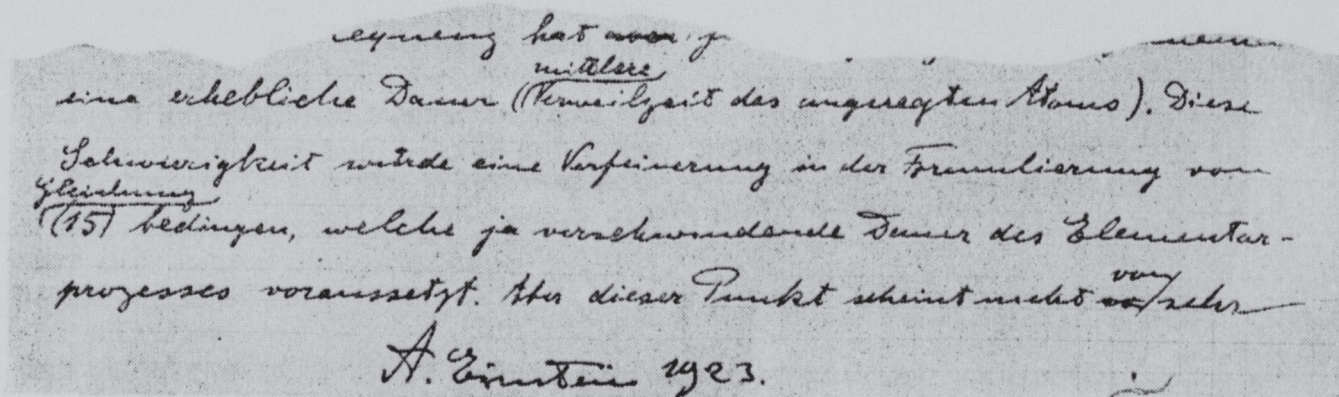 hat
mittlere
eine erhebliche Dauer (Verweilzeit des angeregten Atoms). Diese
Schwierigkeit würde eine Verfeinerung in der Formulierung von
Gleichung
(15) bedingen, welche ja verschwindende Dauer des Elementar-
prozesses voraussetzt. Aber dieser Punkt scheint nicht von sehr
A. Einstein 1923.